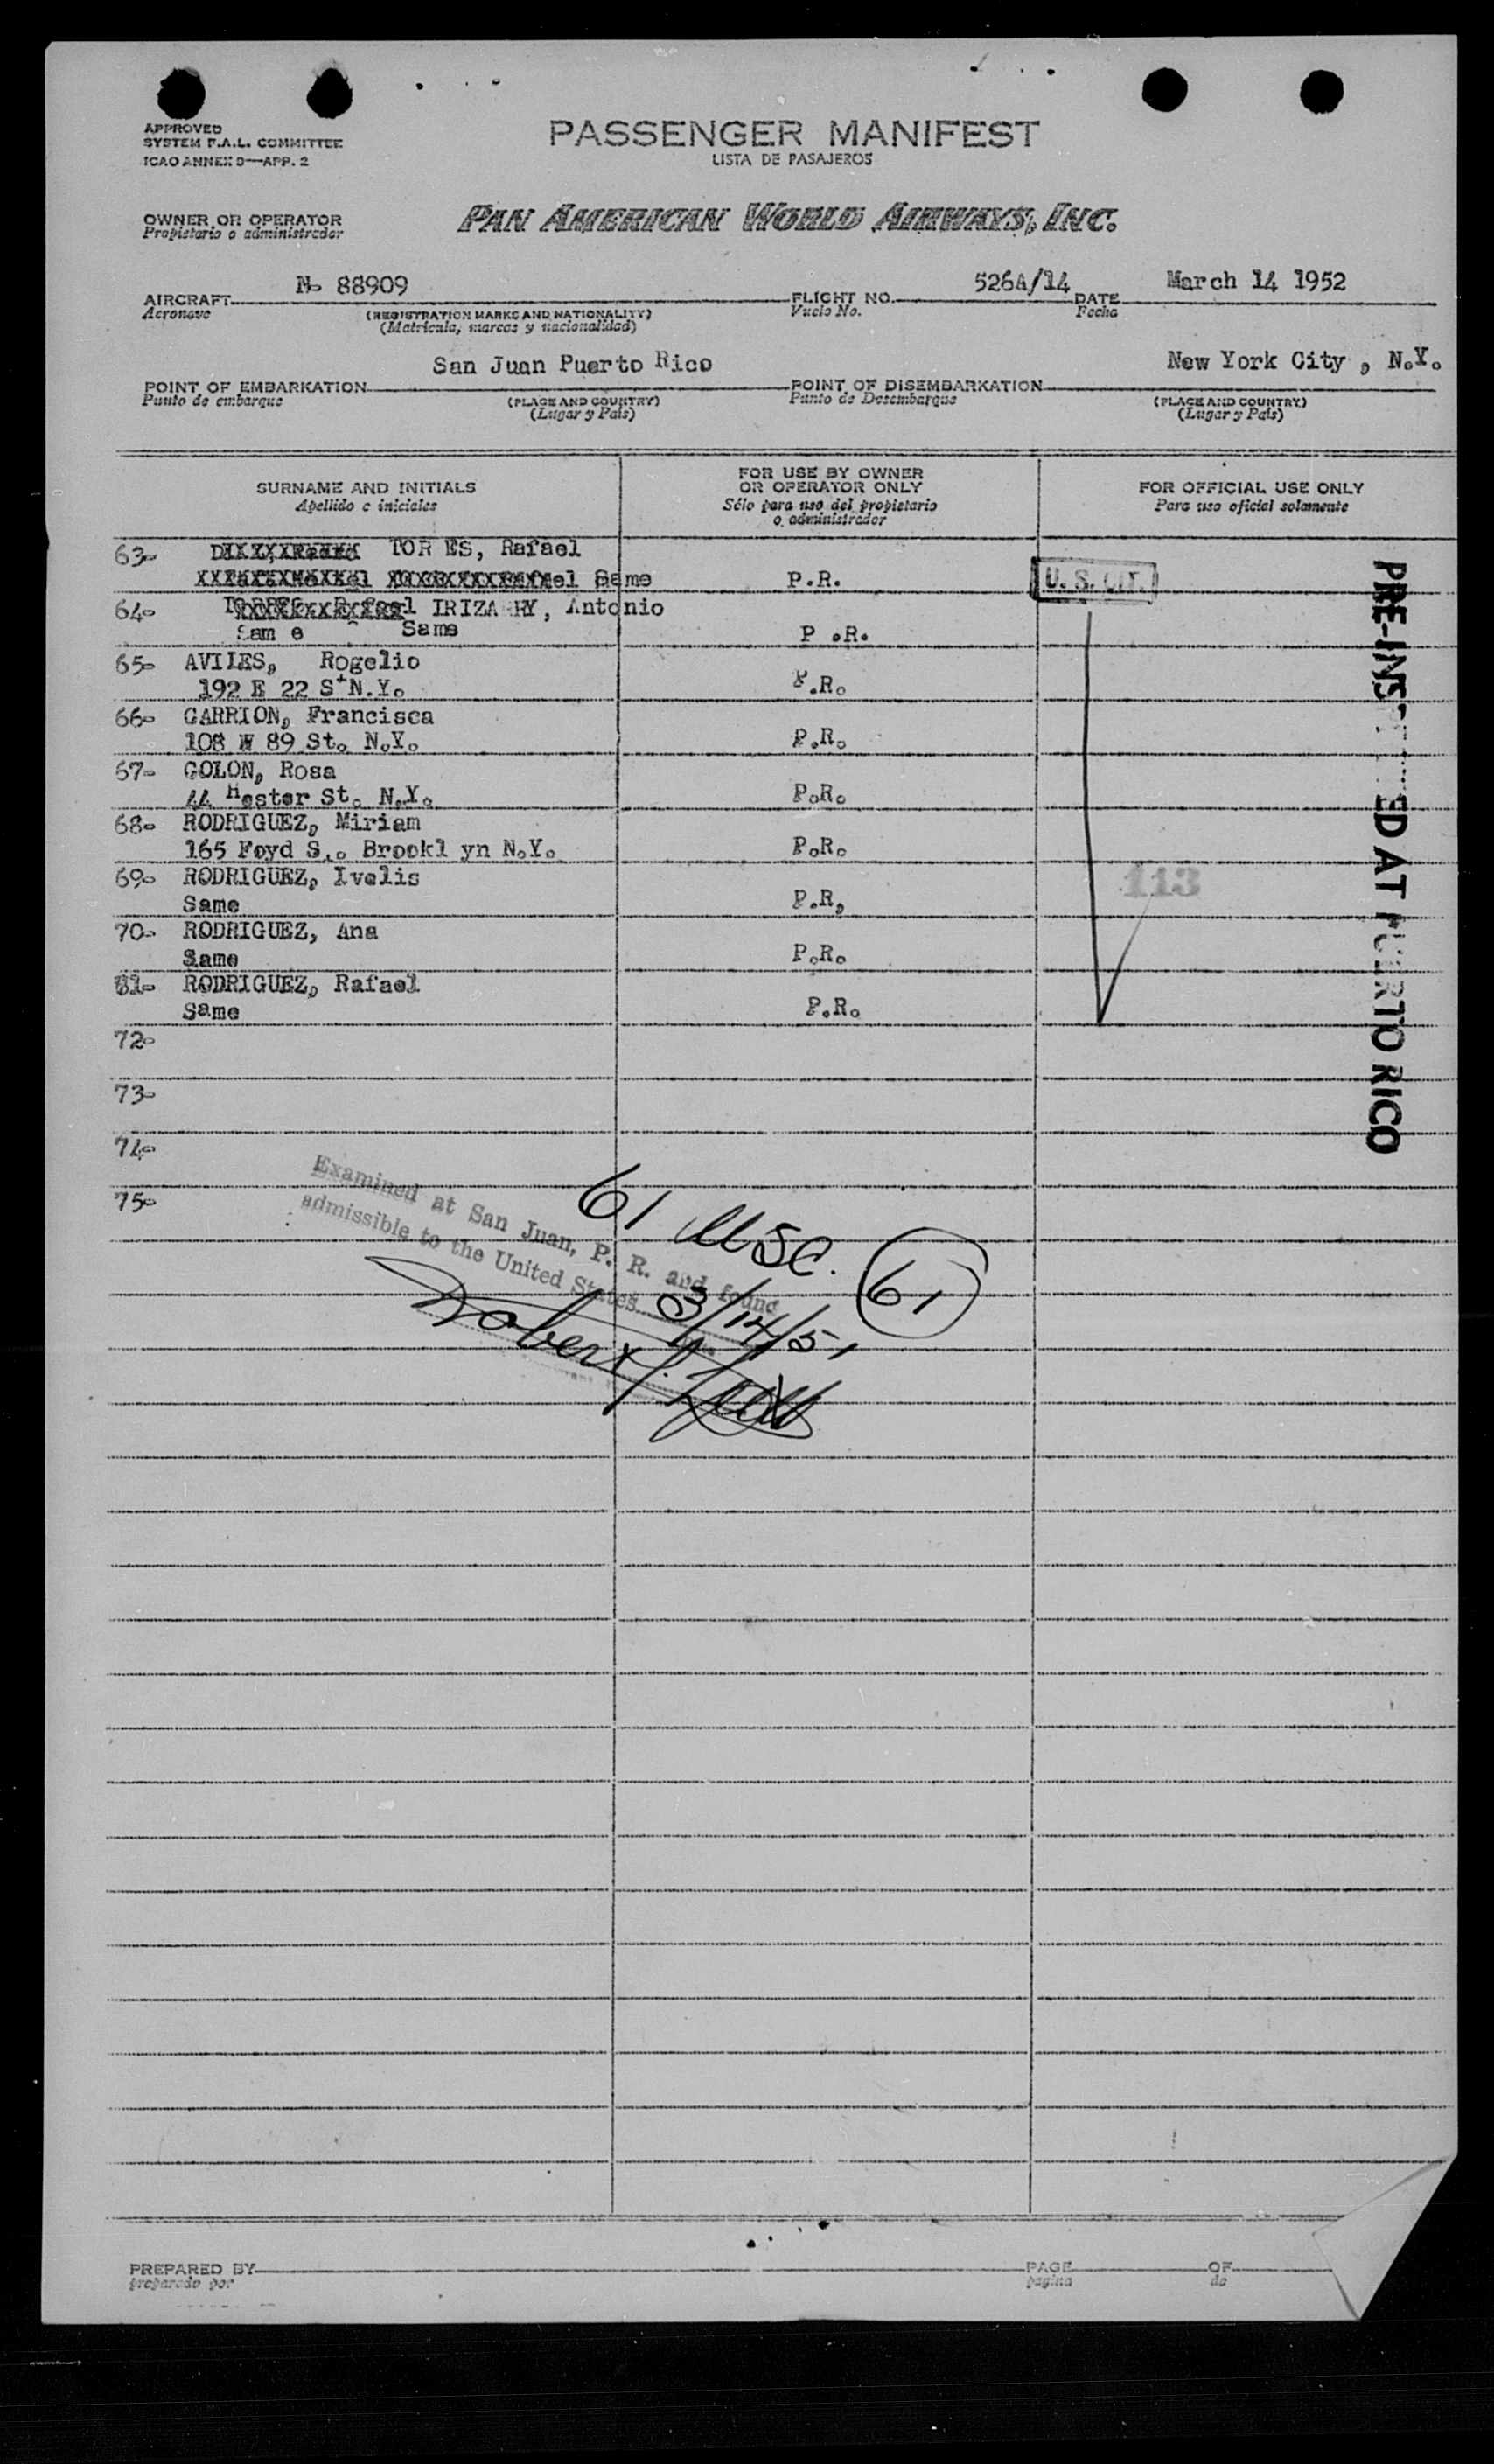 APPROVED
SYSTEM F.A.L. COMMITTEE
ICAO ANNEX 9—APP. 2
PASSENGER MANIFEST
LISTA DE PASAJEROS
OWNER OR OPERATOR
Propietario o administrador
PAN AMERICAN WORLD AIRWAYS, INC.
AIRCRAFT N- 88909
Aeronave
(REGISTRATION MARKS AND NATIONALITY)
(Matrícula, marcas y nacionalidad)
FLIGHT NO. 526A/14
Vuelo No.
DATE March 14 1952
Fecha
POINT OF EMBARKATION San Juan Puerto Rico
Punto de embarque
(PLACE AND COUNTRY)
(Lugar y País)
POINT OF DISEMBARKATION New York City , N.Y.
Punto de Desembarque
(PLACE AND COUNTRY)
(Lugar y País)
SURNAME AND INITIALS
Apellido e iniciales
FOR USE BY OWNER
OR OPERATOR ONLY
Sólo para uso del propietario
o administrador
FOR OFFICIAL USE ONLY
Para uso oficial solamente
63- TOR ES, Rafael
Same P.R. U. S. CIT.
64- IRIZA RY, Antonio
Sam e Same P .R.
65- AVILES, Rogelio
192 E 22 St N.Y. P.R.
66- CARRION, Francisca
108 W 89 St. N.Y. P.R.
67- COLON, Rosa
44 Hester St. N.Y. P.R.
68- RODRIGUEZ, Miriam
165 Foyd S,. Brookl yn N.Y. P.R.
69- RODRIGUEZ, Ivelis
Same P.R, 113
70- RODRIGUEZ, Ana
Same P.R.
RODRIGUEZ, Rafael
Same P.R.
72-
73-
74-
75-
PRE-INSP TED AT PUERTO RICO
61 USC. 61
Examined at San Juan, P. R. and found
admissible to the United States
3/14/51
PREPARED BY
preparado por
PAGE
pagina
OF
de